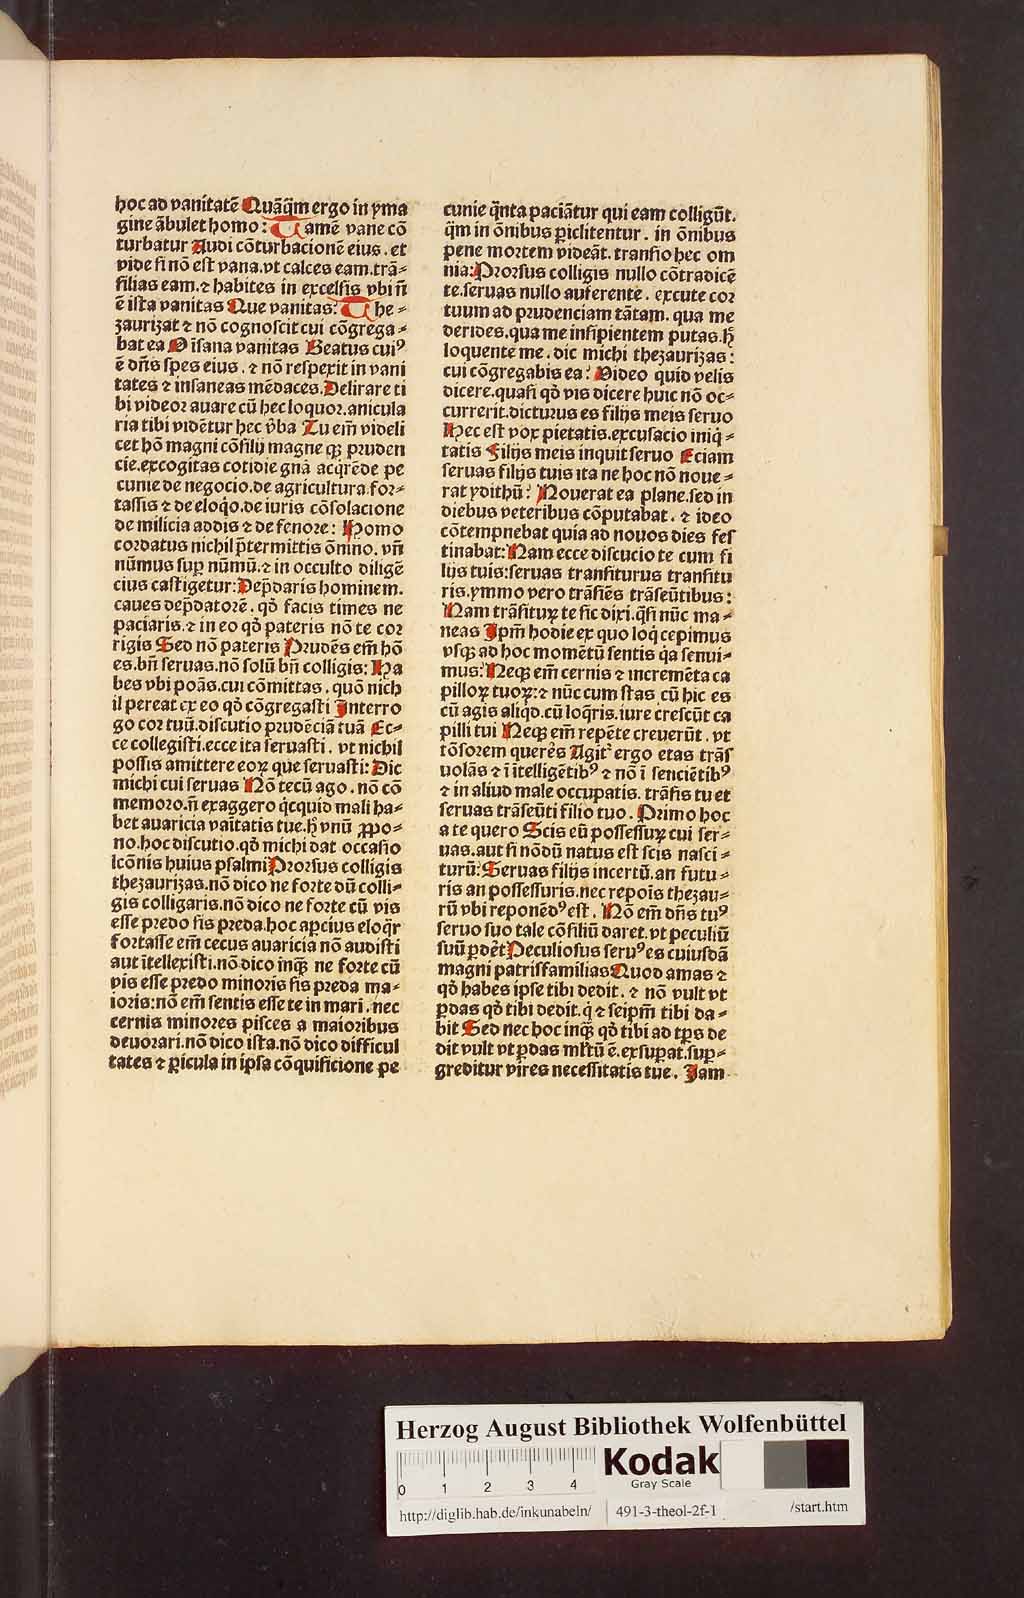 hoc ad vanitatē Quāq̄m ergo in yma
gine ābulet homo: Tamē vane cō
turbatur Audi cōturbacionē eius. et
vide si nō est vana. vt calces eam. trā=
silias eam. ⁊ habites in excelsis vbi n̄
ē ista vanitas Que vanitas: The=
zaurizat ⁊ nō cognoscit cui cōgrega=
bat ea O isana vanitas Beatus cuiꝰ
ē dn̄s spes eius. ⁊ nō respexit in vani
tates ⁊ insaneas mēdaces. Delirare ti
bi videor auare cū hec loquor. anicula
ria tibi vidētur hec v̄ba Tu em̄ videli
cet hō magni cōsilij magne qꝫ pruden
cie. excogitas cotidie gn̄a acq̄rēde pe
cunie de negocio. de agricultura. for=
tassis ⁊ de eloq̄o. de iuris cōsolacione
de milicia addis ⁊ de fenore: Homo
cordatus nichil p̄termittis ōnino. vn̄
nūmus suꝑ nūmū. ⁊ in occulto diligē
cius castigetur: Dep̄daris hominem.
caues dep̄datorē. qd̄ facis times ne
paciaris. ⁊ in eo qd̄ pateris nō te cor
rigis Sed nō pateris Prudēs em̄ hō
es. bn̄ seruas. nō solū bn̄ colligis: Ha
bes vbi poās. cui cōmittas. quō nich
il pereat ex eo qd̄ cōgregasti Interro
go cor tuū. discutio prudēciā tuā Ec=
ce collegisti. ecce ita seruasti. vt nichil
possis amittere eoꝝ que seruasti: Dic
michi cui seruas Nō tecū ago. nō cō
memoro. n̄ exaggero q̄cquid mali ha=
bet auaricia vanītatis tue. hͦ vnū ꝓpo=
no. hoc discutio. qd̄ michi dat occasio
lcōnis huius psalmi Prorsus colligis
thezaurizas. nō dico ne forte dū colli=
gis colligaris. nō dico ne forte cū vis
esse predo sis preda. hoc apcius eloq̄r
fortasse em̄ cecus auaricia nō audisti
aut ītellexisti. nō dico inqꝫ ne forte cū
vis esse predo minoris sis preda ma=
ioris: nō em̄ sentis esse te in mari. nec
cernis minores pisces a maioribus
deuorari. nō dico ista. nō dico difficul
tates ⁊ ꝑicula in ipsa cōquisicione pe
cunie q̄nta paciātur qui eam colligūt.
q̄m in ōnibus ꝑiclitentur. in ōnibus
pene mortem videāt. transio hec om
nia: Prorsus colligis nullo cōtradicē
te. seruas nullo auferente. excute cor
tuum ad prudenciam tātam. qua me
derides. qua me insipientem putas. hͦ
loquente me. dic michi thezaurizas:
cui cōgregabis ea: Video quid velis
dicere. quasi qd̄ vis dicere huic nō oc=
currerit. dicturus es filijs meis seruo
Hec est vox pietatis. excusacio iniq̄=
tatis Filijs meis inquit seruo Eciam
seruas filijs tuis ita ne hoc nō noue=
rat ydithū: Nouerat ea plane. sed in
diebus veteribus cōputabat. ⁊ ideo
cōtempnebat quia ad nouos dies fes
tinabat: Nam ecce discucio te cum fi
lijs tuis: seruas transiturus transitu
ris. ymmo vero trāsiēs trāseūtibus:
Nam trāsituꝝ te sic dixi. q̄si nūc ma=
neas Ipm̄ hodie ex quo loq̄ cepimus
vsqꝫ ad hoc momētū sentis q̄a senui=
mus: Neqꝫ em̄ cernis ⁊ incremēta ca
pilloꝝ tuoꝝ: ⁊ nūc cum stas cū hic es
cū agis aliqd̄. cū loq̄ris. iure crescūt ca
pilli tui Neqꝫ em̄ repēte creuerūt. vt
tōsorem querēs Agit᷑ ergo etas trās
uolās ⁊ ī ītelligētibꝰ ⁊ nō ī senciētibꝰ
⁊ in aliud male occupatis. trāsis tu et
seruas trāseūti filio tuo. Primo hoc
a te quero Scis eū possessuꝝ cui ser=
uas. aut si nōdū natus est scis nasci=
turū: Seruas filijs incertū. an futu=
ris an possessuris. nec repoīs thezau=
rū vbi reponēdꝰ est. Nō em̄ dn̄s tuꝰ
seruo suo tale cōsiliū daret. vt peculiū
suū ꝑdēt Peculiosus seruꝰ es cuiusdā
magni patrisfamilias Quod amas ⁊
qd̄ habes ipse tibi dedit. ⁊ nō vult vt
ꝑdas qd̄ tibi dedit. q̄ ⁊ seipm̄ tibi da=
bit Sed nec hoc inqꝫ qd̄ tibi ad tp̄s de
dit vult vt ꝑdas ml̄tū ē. exsuꝑat. suꝑ=
greditur vires necessitatis tue. Iam
Herzog August Bibliothek Wolfenbüttel
0 1 2 3 4
Kodak
Gray Scale
http://diglib.hab.de/inkunabeln/ 491-3-theol-2f-1 /start.htm